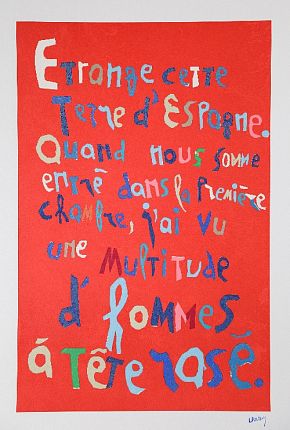 Etrange cette
Terre d'Espagne.
Quand nous somme
entré dans la première
chambre, j'ai vu
une multitude
d'hommes
á tête rasé.